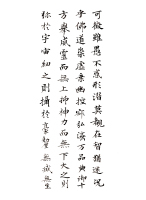 可徵雖愚不惑形潛莫覩在智猶迷況
乎佛道崇虛乘幽控寂弘濟萬品典御十
方舉威靈而無上抑神力而無下大之則
彌於宇宙細之則攝於豪釐無滅無生